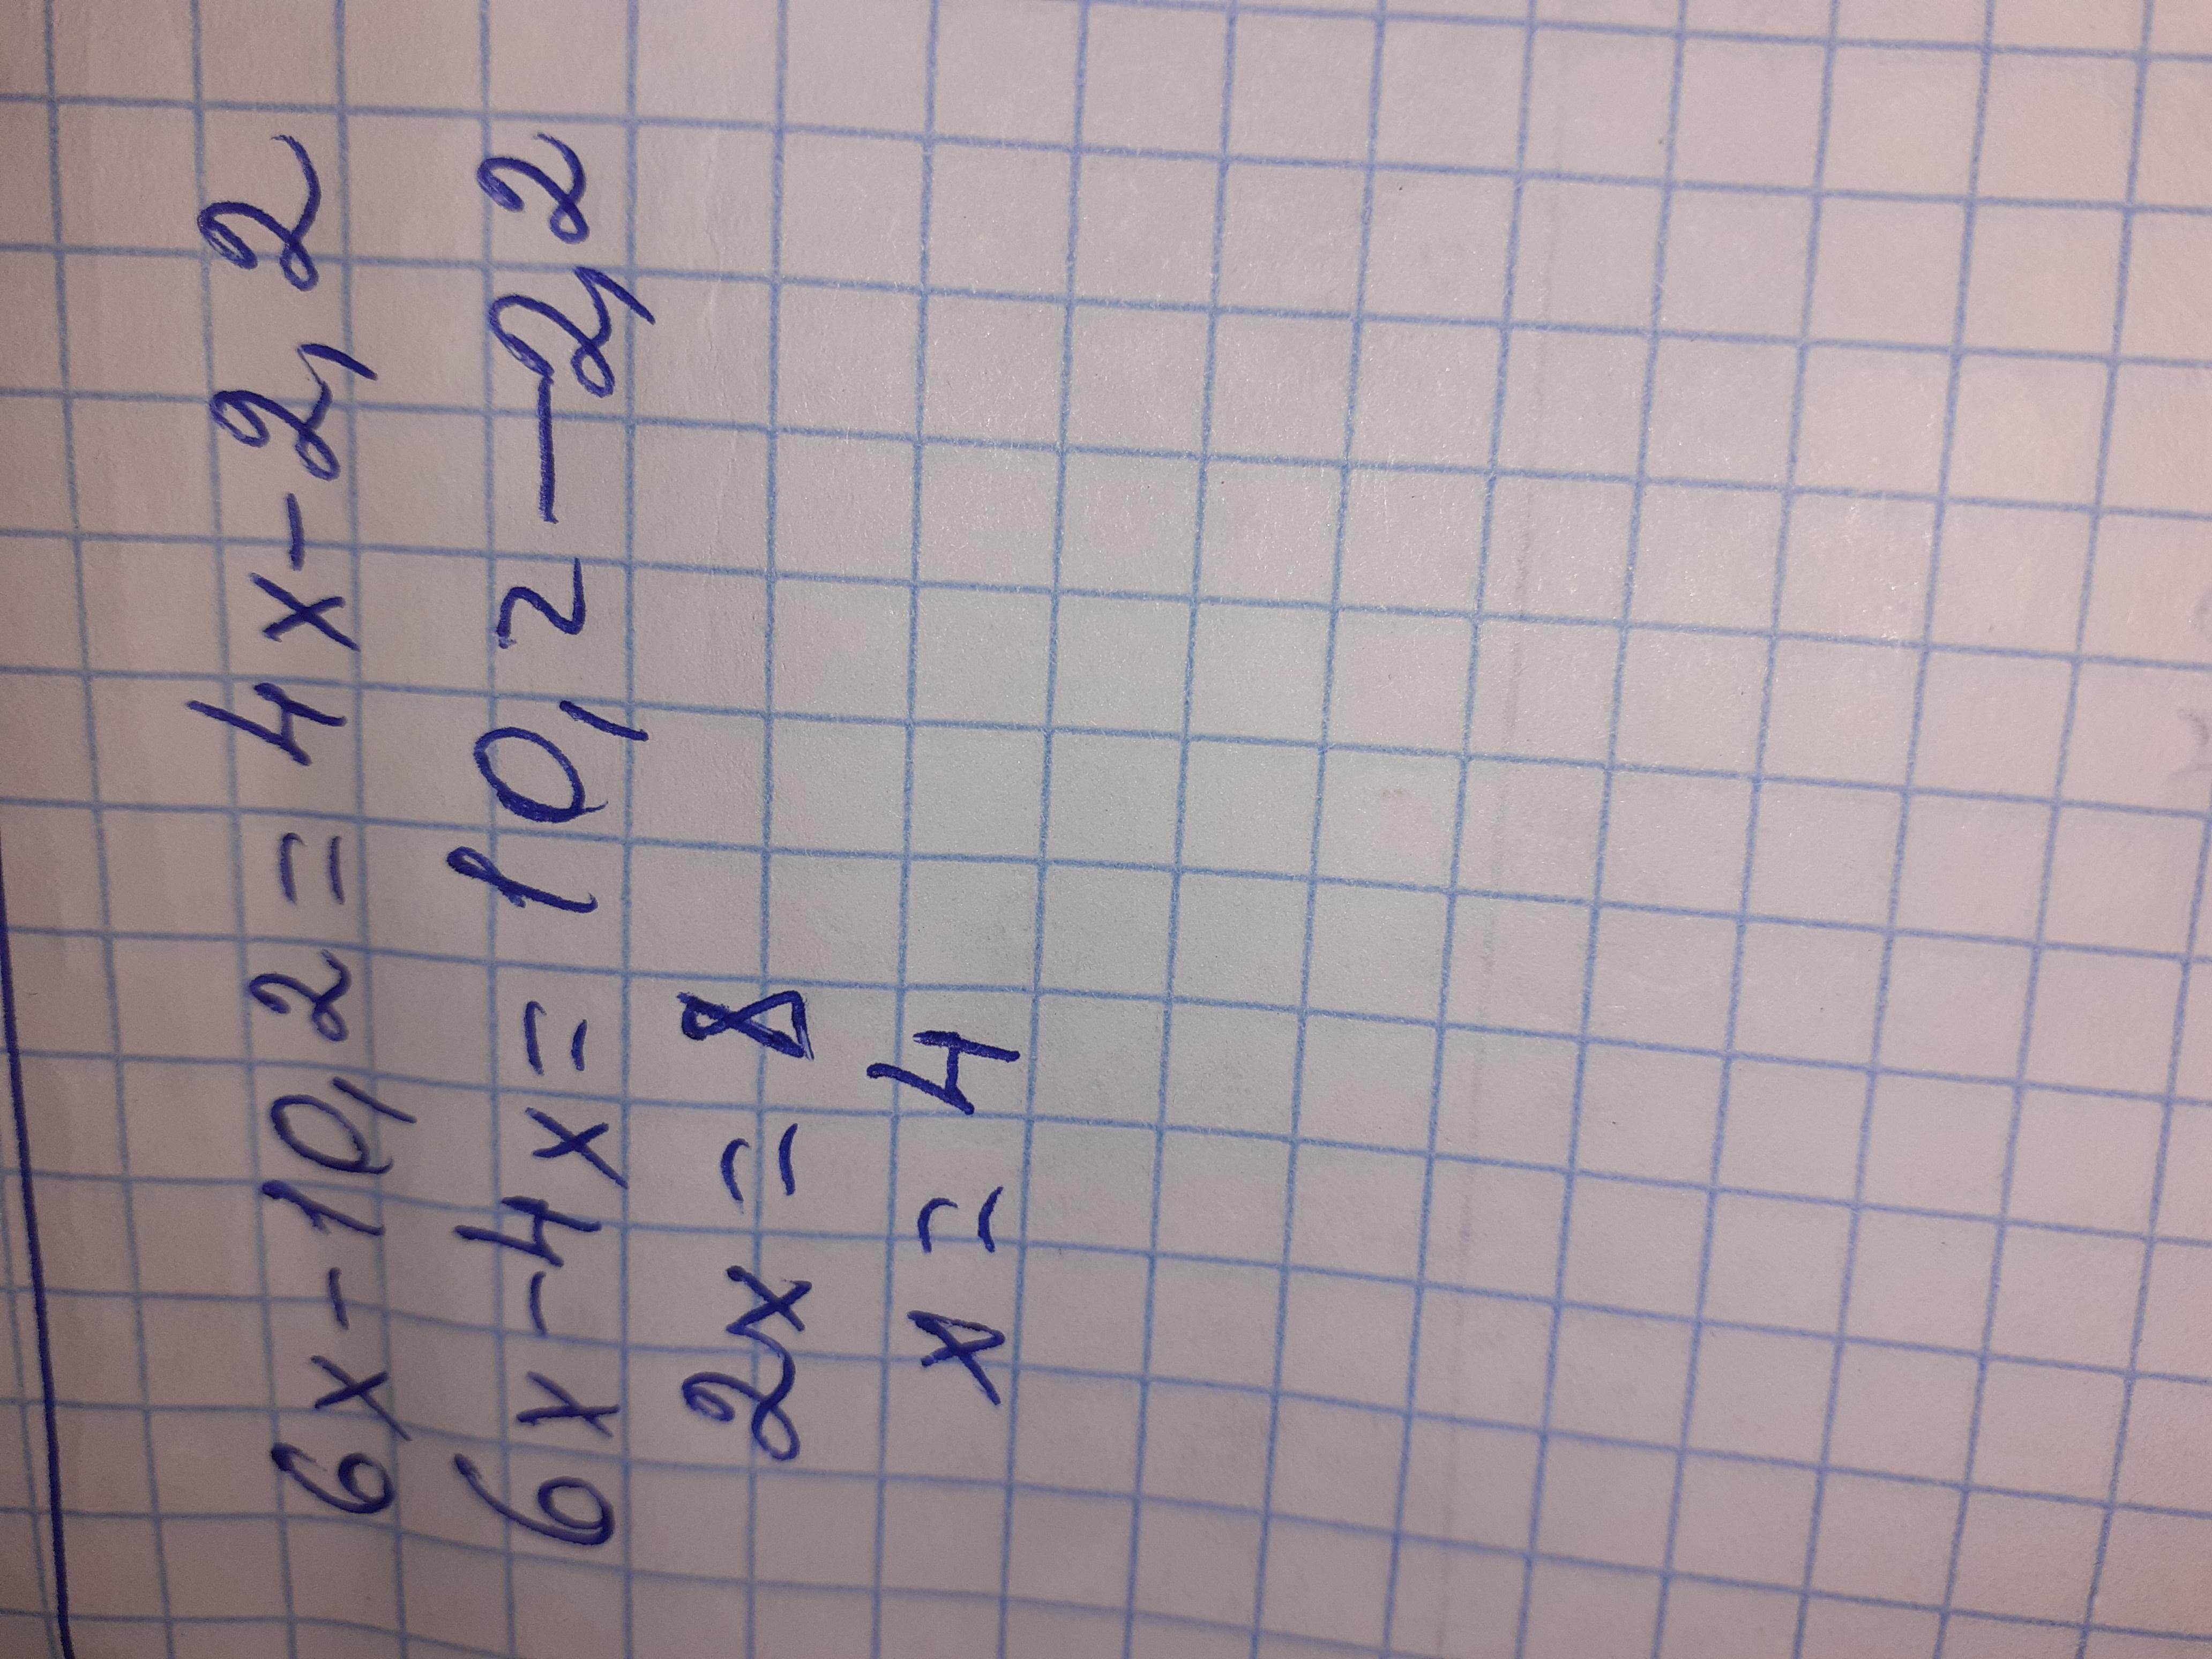 6x-10,2=4x-2,2
6x-4x=10,2-2,2
2x=8
x=4